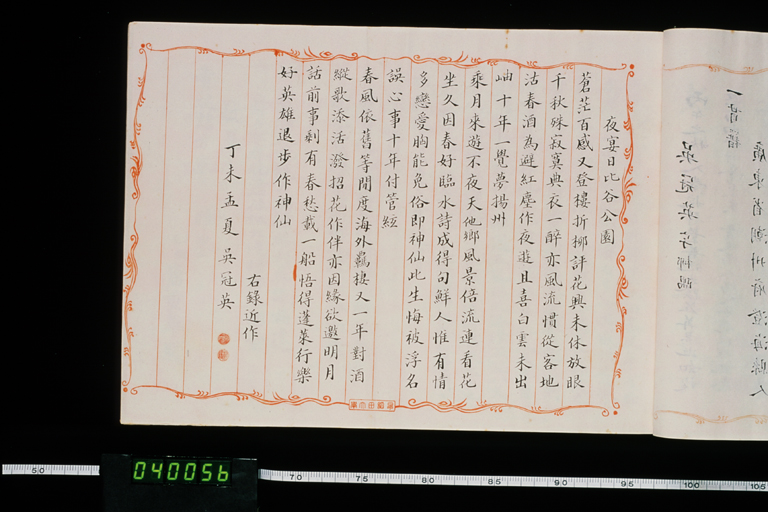 夜宴日比谷公園
蒼茫百感又登樓折柳評花興未休放眼
千秋殊寂寞典衣一醉亦風流慣從客地
沽春酒為避紅塵作夜遊且喜白雲未出
岫十年一覺夢揚州
乘月來遊不夜天他鄉風景倍流連看花
坐久因春好臨水詩成得句鮮人惟有情
多戀愛胸能免俗即神仙此生悔被浮名
誤心事十年付管絃
春風依舊等閒度海外羈棲又一年對酒
縱歌添活潑招花作伴亦因緣欲邀明月
話前事剩有春愁載一船悟得蓬萊行樂
好英雄退步作神仙
右錄近作
丁未孟夏 吳冠英
一廿
廣東省潮州府澄海縣人
吳冠英字
040056
50
70
75
80
85
90
95
100
105